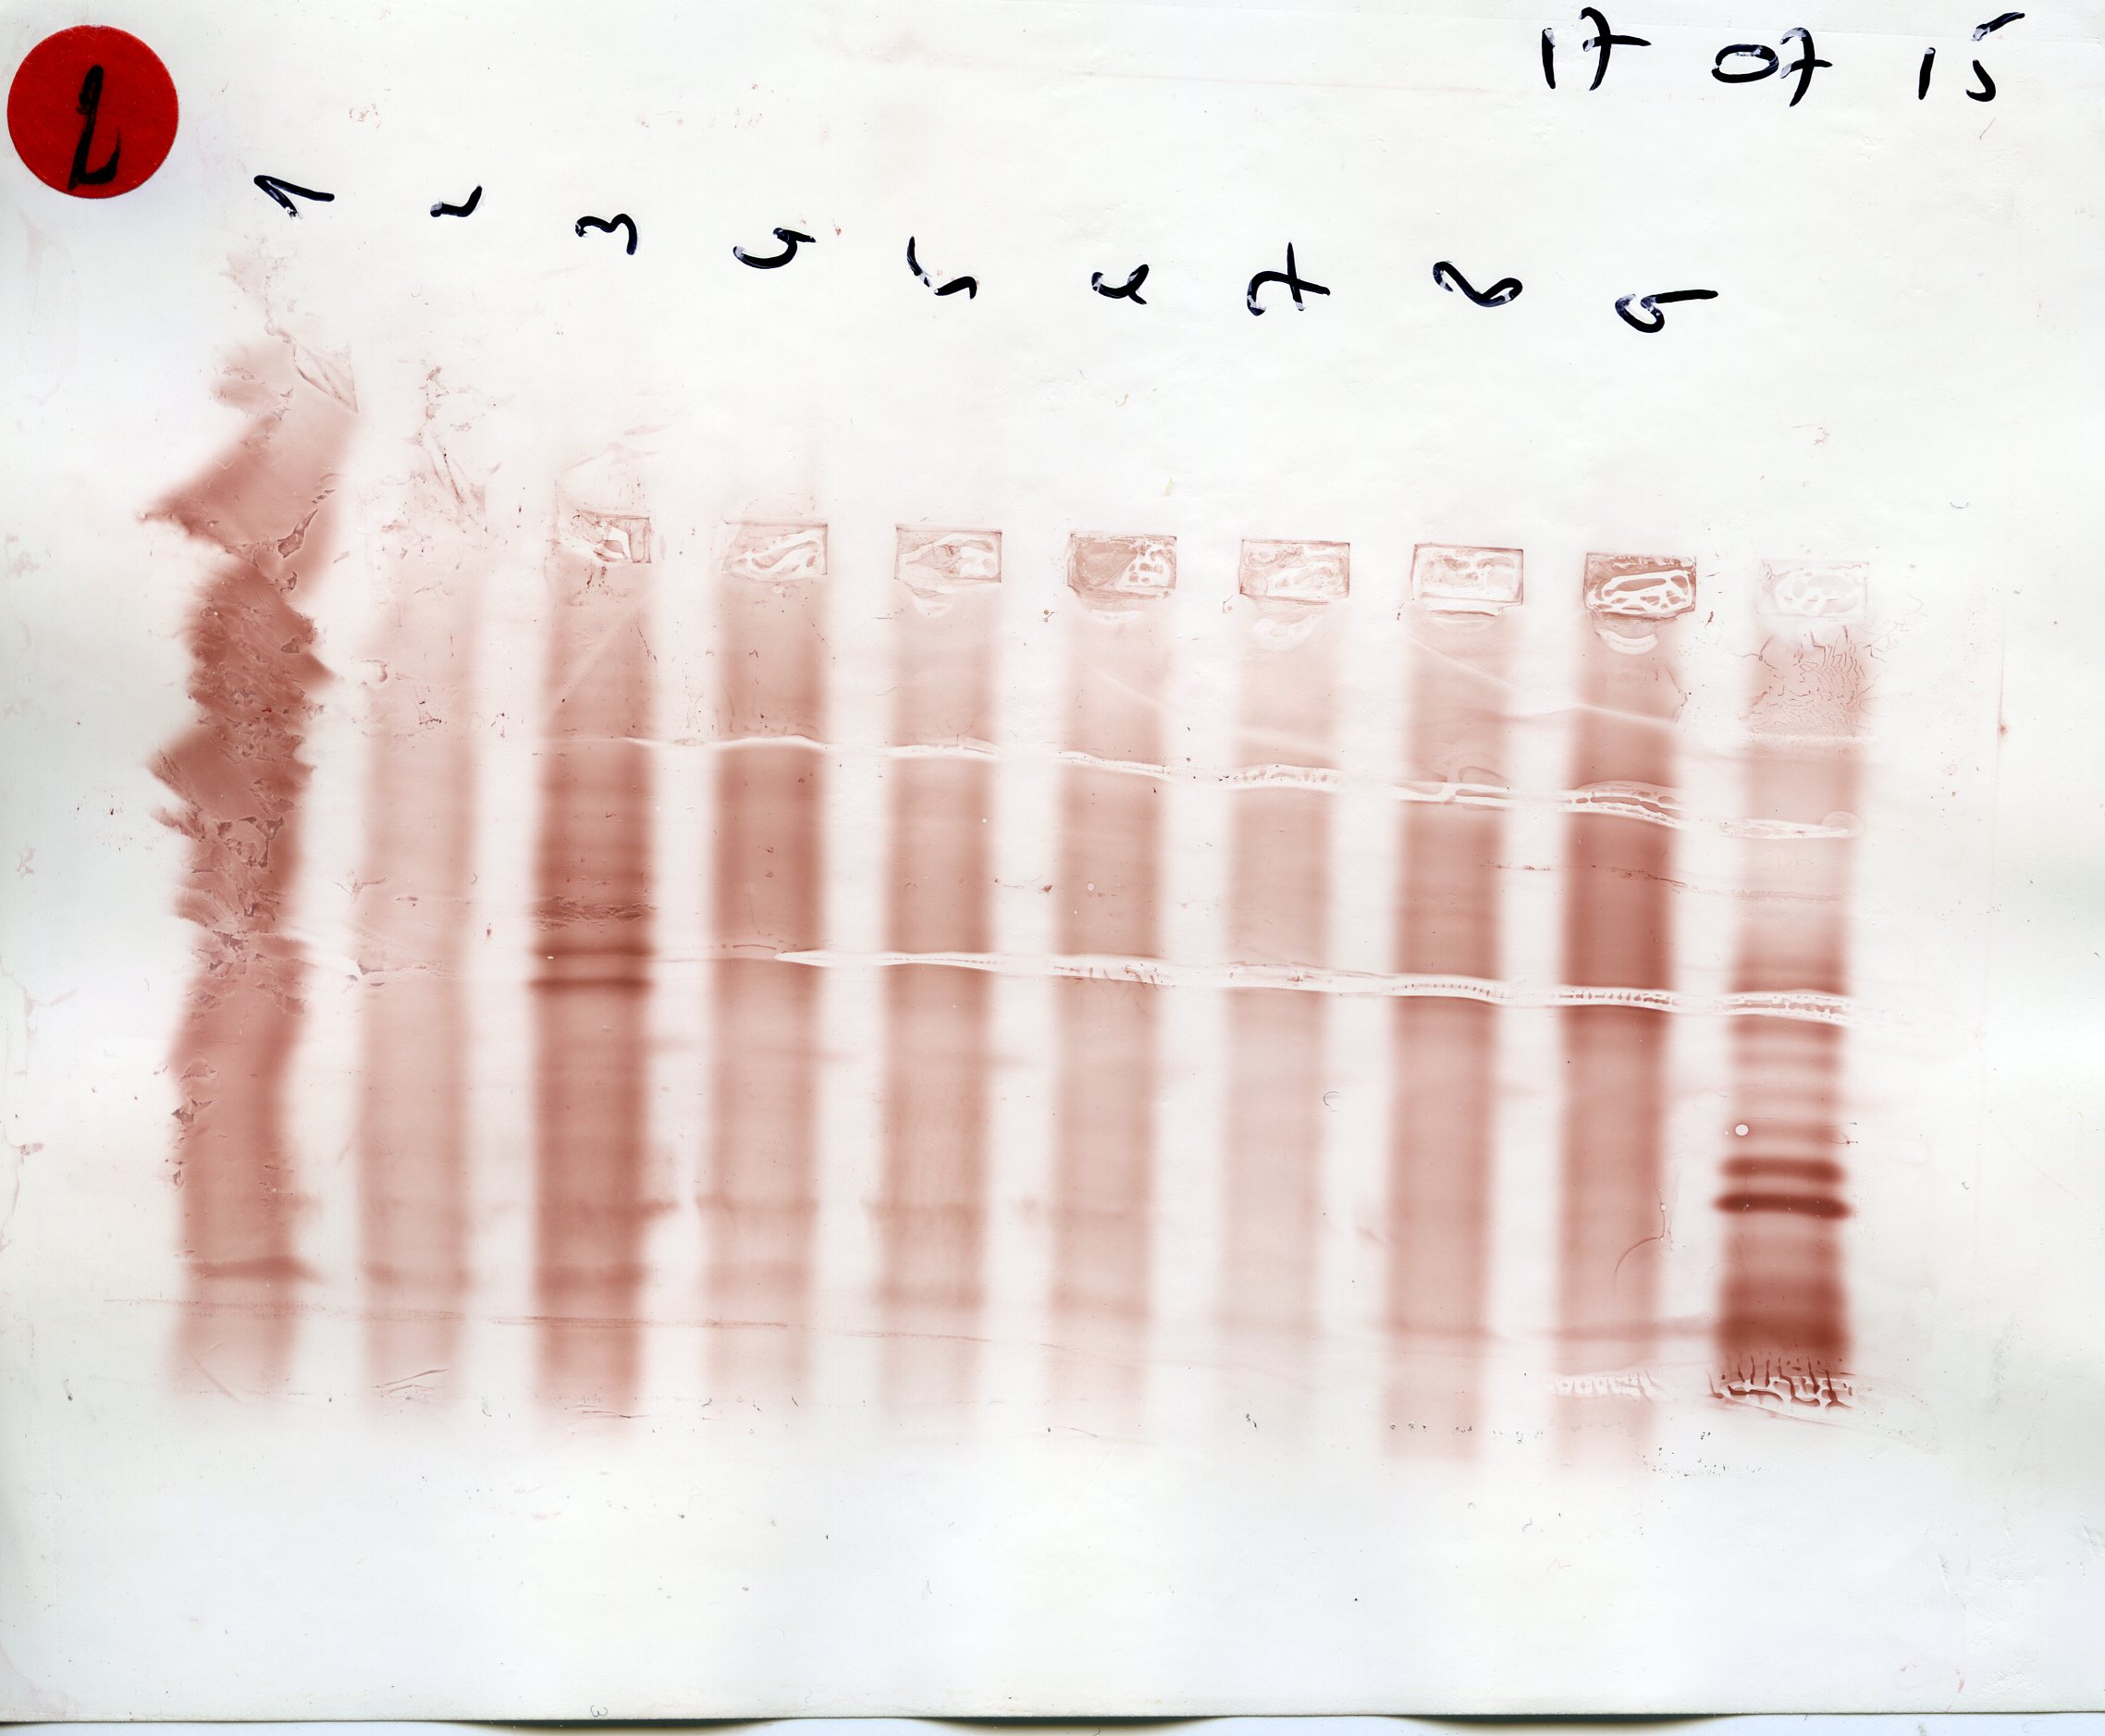 17 07 15
1 2 3 4 5 6 7 8 9